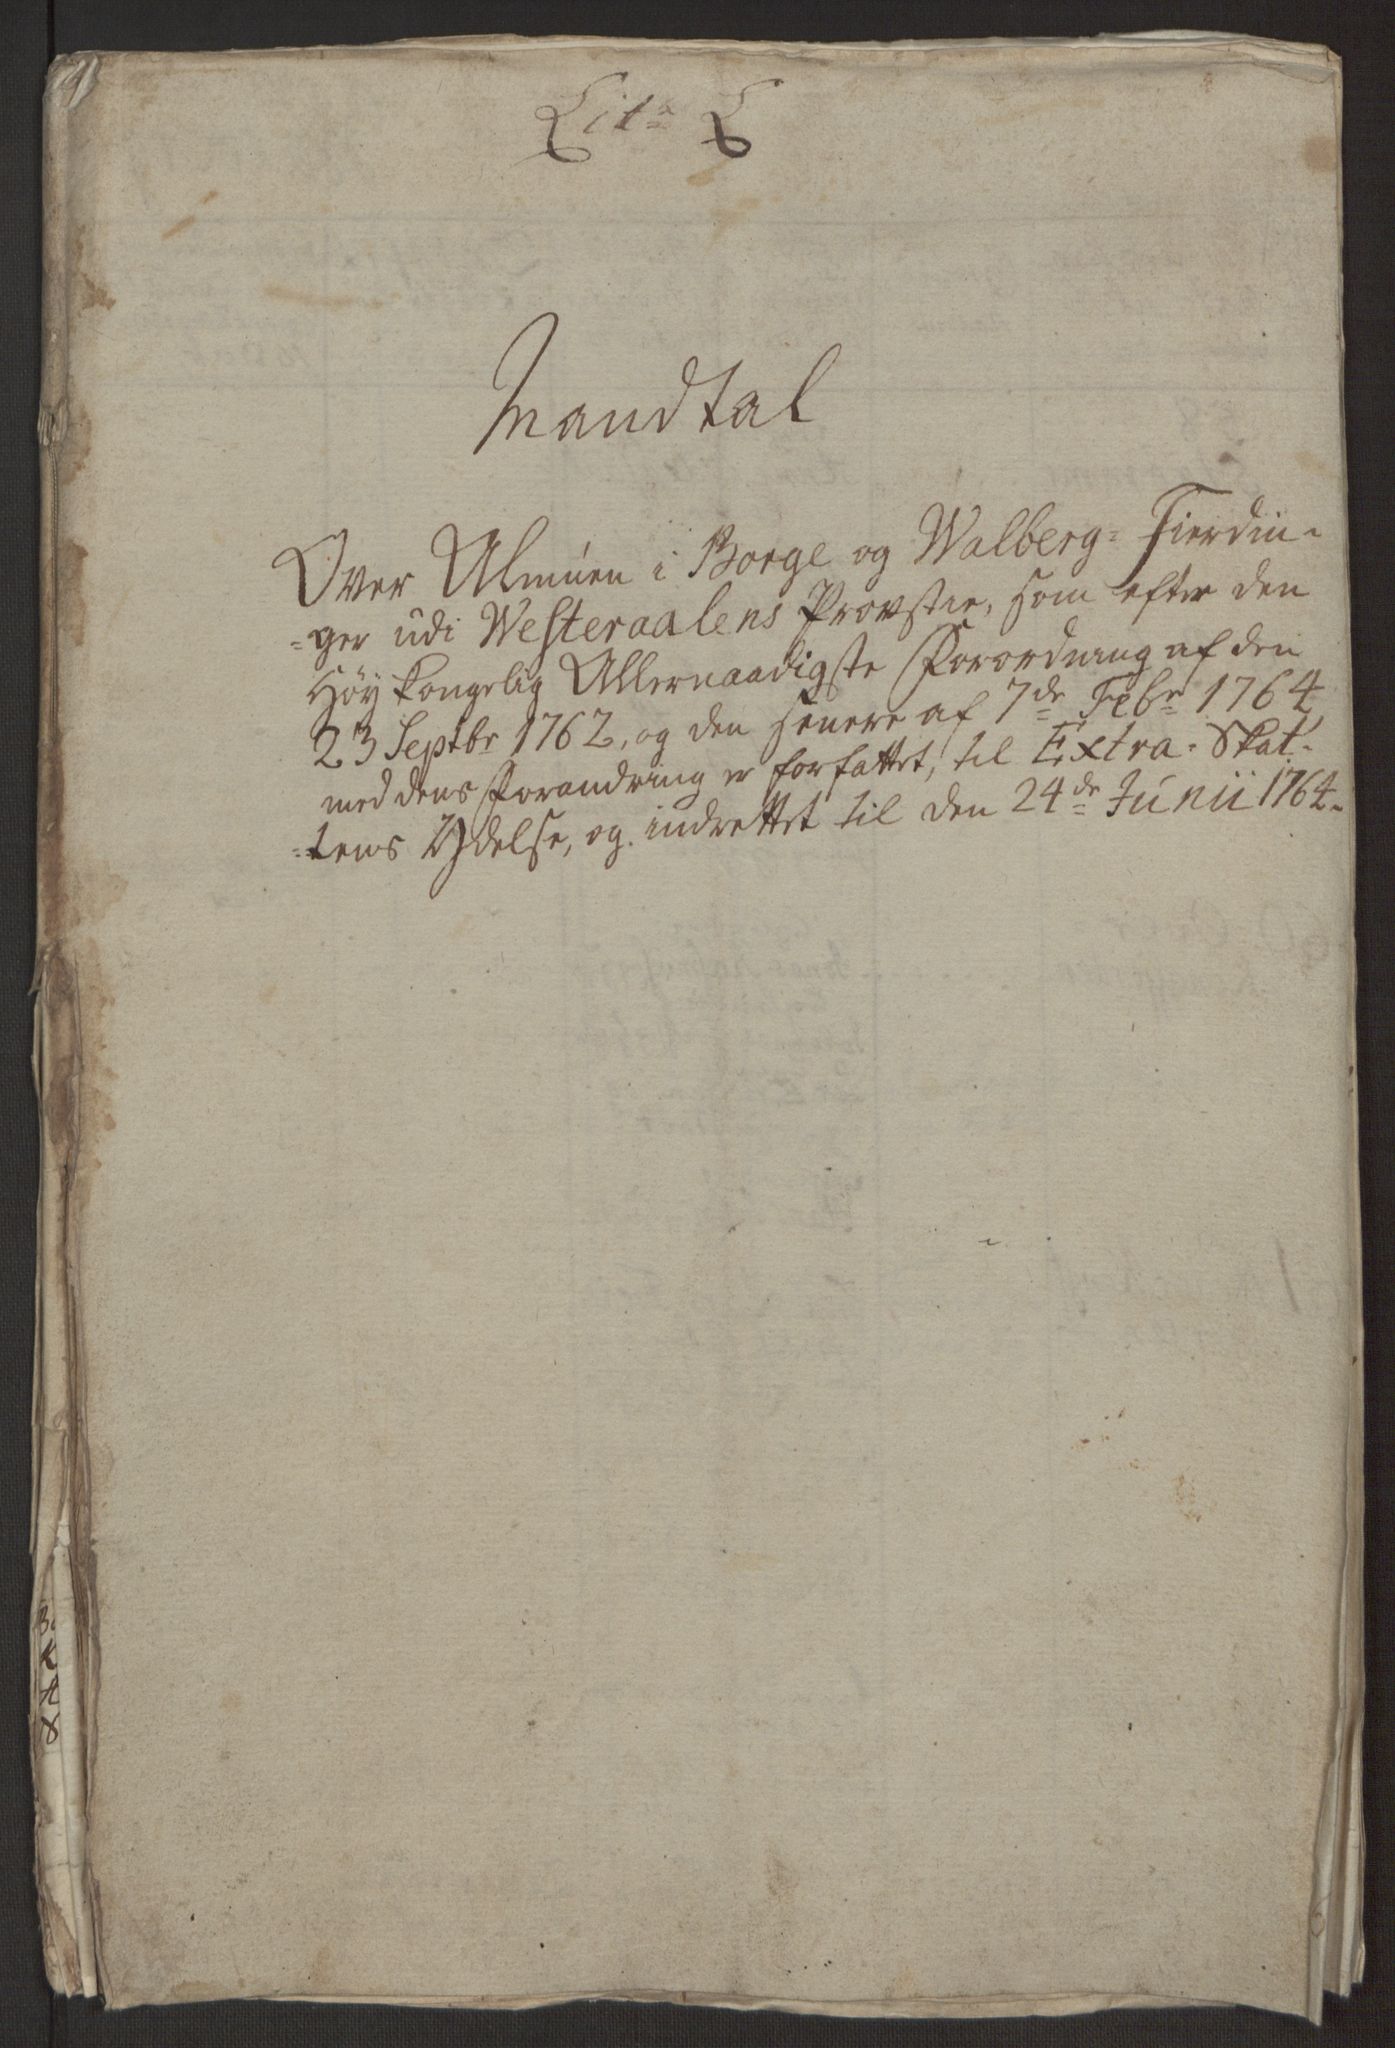 Lit:a
Mandtal
Over Almuen i Borge og Walberg- Fierdin-
-ger udi Westeraalens Provstie, som efter den
Höykongelig Allernaadigste Forordning af den
23 Septbr 1762, og den senere af 7de Febr 1764
med dens Forandring er forfattet, til Extra-Skat-
-tens Ydelse, og indrettet til den 24de Junii 1764.